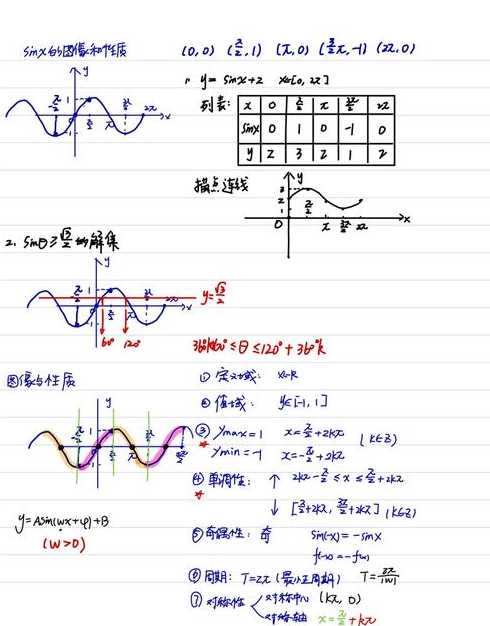 sinx的图像和性质
(0,0) (π/2,1) (π,0) (3π/2,-1) (2π,0)
1. y = sinx+2 x∈[0, 2π]
列表: x 0 π/2 π 3π/2 2π
sinx 0 1 0 -1 0
y 2 3 2 1 2
描点连线
y
3
2
1
0 π/2 π 3π/2 2π x
2. sinθ≥√3/2的解集
y=√3/2
60° 120°
≤θ≤120°+360°k
图像与性质
① 定义域: x∈R
② 值域: y∈[-1, 1]
③ ymax=1 x=π/2+2kπ (k∈Z)
ymin=-1 x=-π/2+2kπ
④ 单调性: ↑ 2kπ-π/2≤x≤π/2+2kπ
↓ [π/2+2kπ, 3π/2+2kπ] (k∈Z)
y=Asin(wx+φ)+B
(w>0)
⑤ 奇偶性: 奇 sin(-x)=-sinx
f(-x)=-f(x)
⑥ 周期: T=2π (最小正周期) T=2π/|w|
⑦ 对称性 对称中心 (kπ, 0)
对称轴 x=π/2+kπ